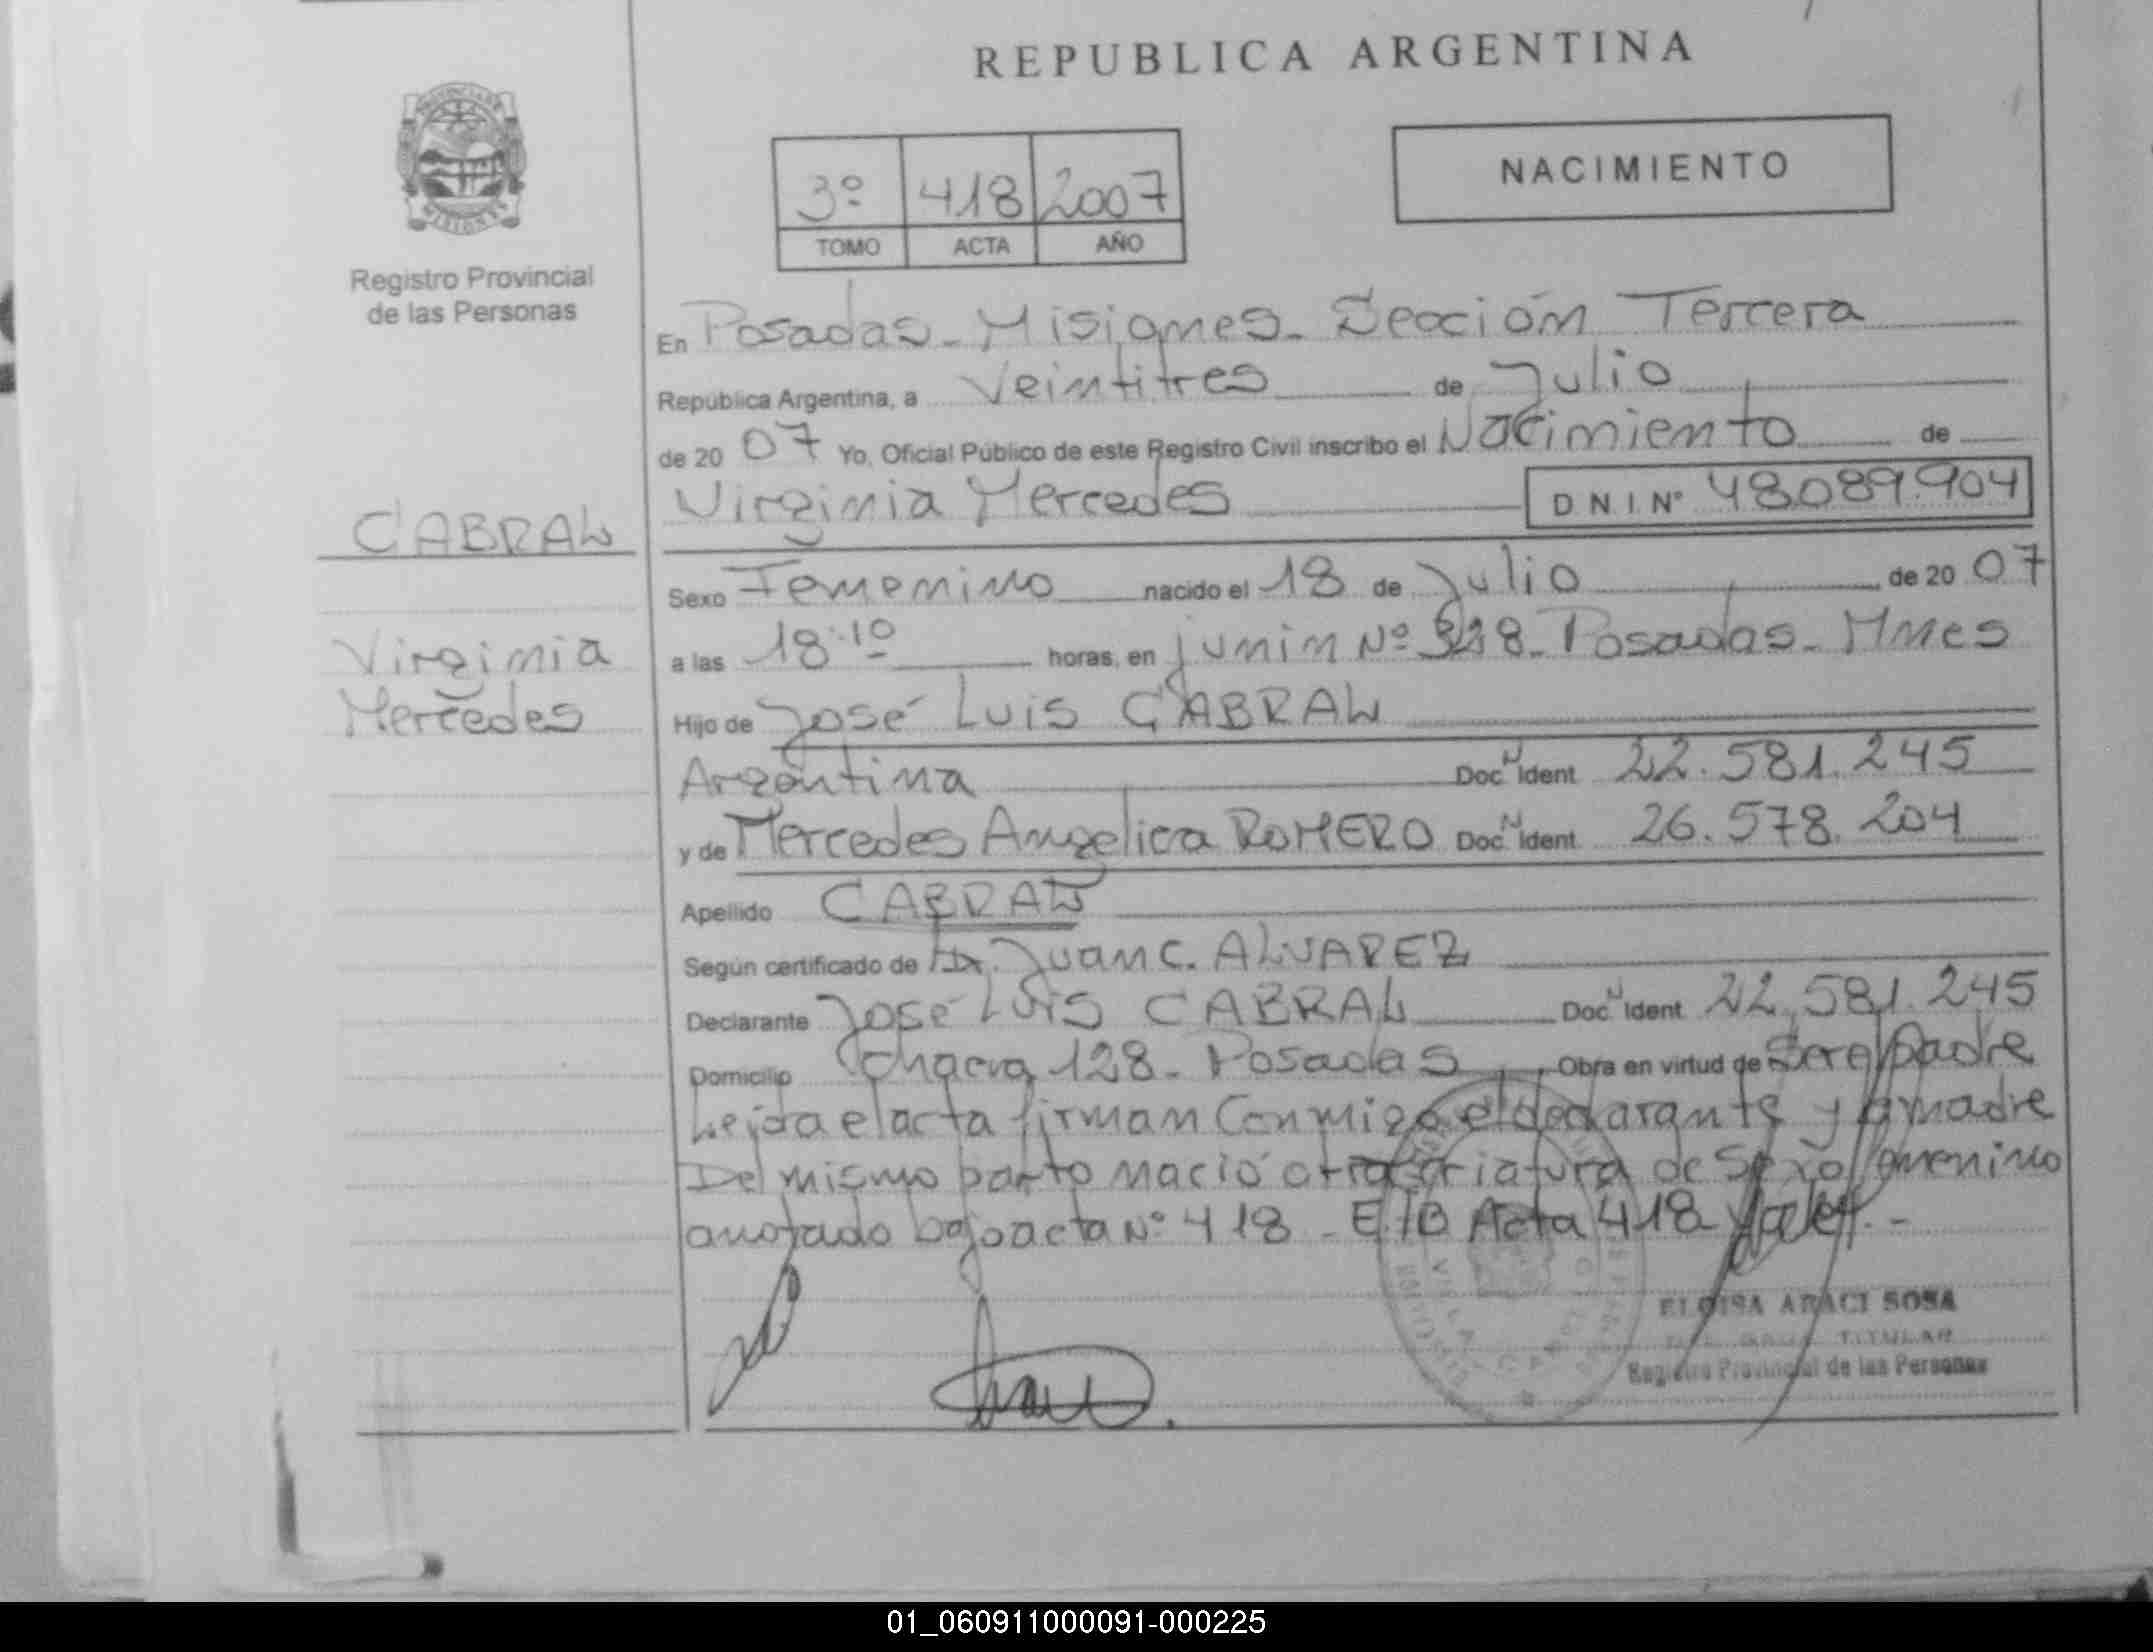 REPUBLICA ARGENTINA
PROVINCIA DE
MISIONES
Registro Provincial
de las Personas
3º 418 2007
TOMO ACTA AÑO
NACIMIENTO
En Posadas - Misiones - Sección Tercera
República Argentina, a Veintitres de Julio
de 20 07 Yo, Oficial Público de este Registro Civil inscribo el Nacimiento de
Virginia Mercedes D N I Nº 48.089.904
CABRAL
Virginia
Mercedes
Sexo Femenino nacido el 18 de Julio de 20 07
a las 18:10 horas, en junin Nº Posadas - Mnes
Hijo de José Luis CABRAL
Argentina Doc N Ident 22.581.245
y de Mercedes Angelica ROMERO Doc N Ident 26.578.204
Apellido CABRAL
Según certificado de Dr. Juan C. ALVAREZ
Declarante José Luis CABRAL Doc N Ident 22.581.245
Domicilio Chacra 128 - Posadas Obra en virtud de Ser el padre
Leida el acta firman Conmigo el declarante y la madre
Del mismo parto nació otra criatura de Sexo femenino
anotado bajo acta Nº 418 - E/B Acta 418 Vale. -
ELOISA ARACI SOSA
TITULAR
Registro Provincial de las Personas
01_060911000091-000225